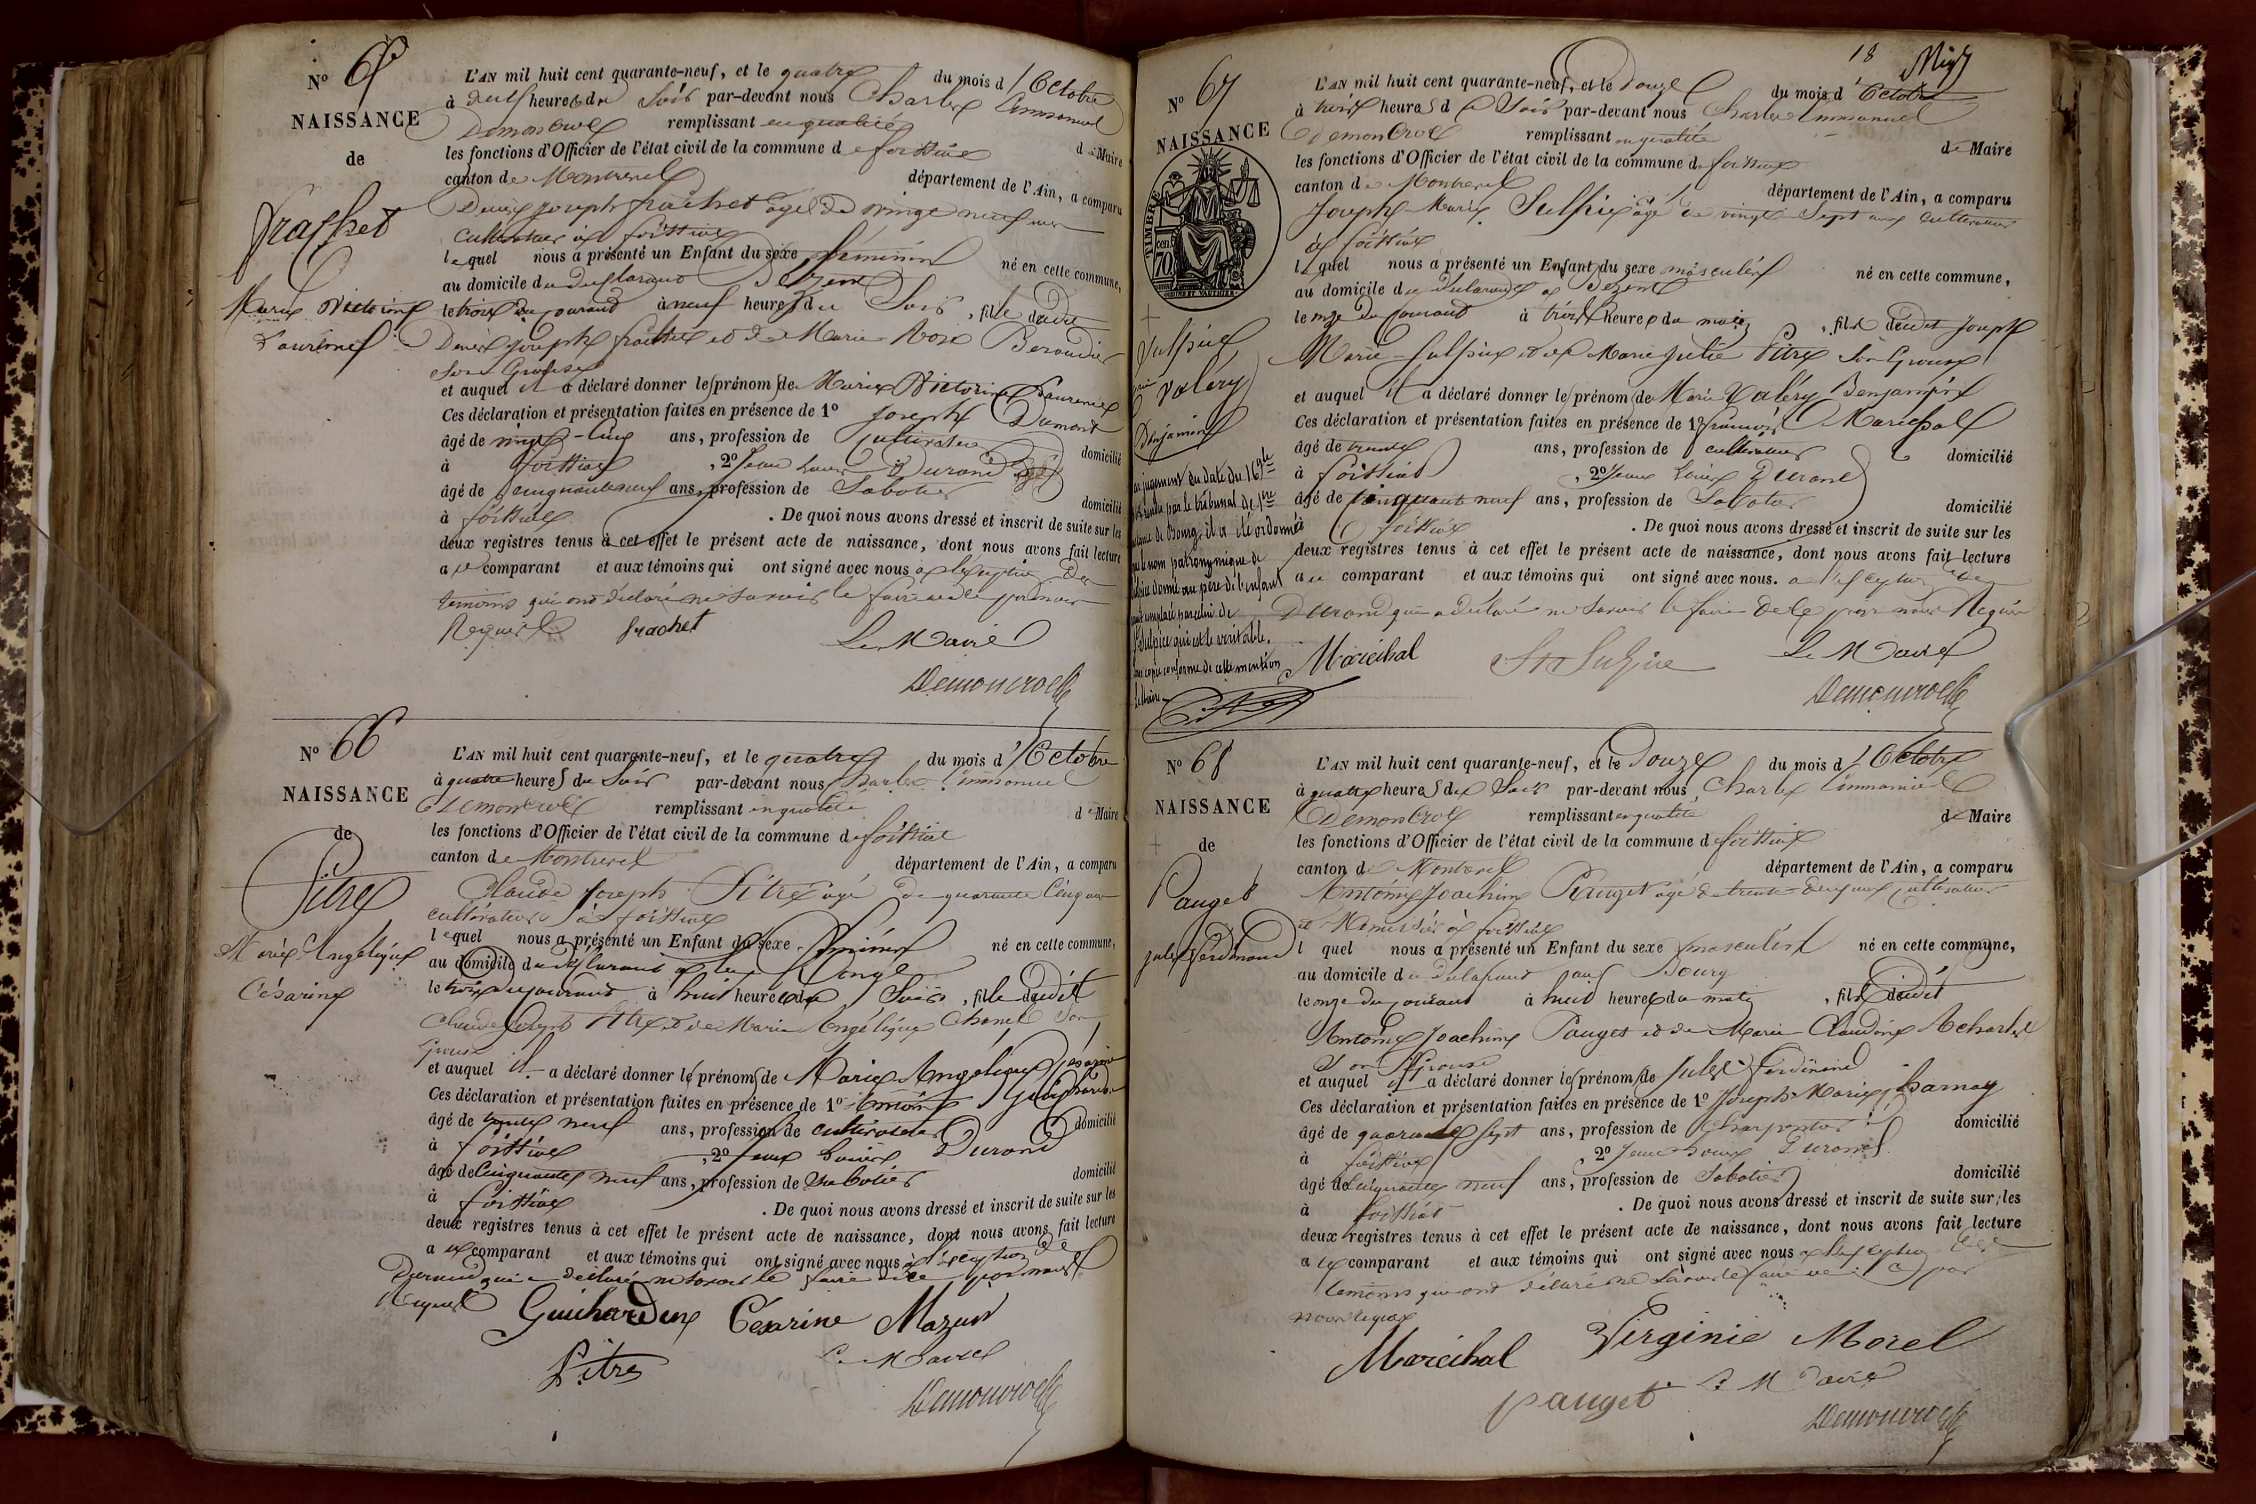 N° 65
NAISSANCE
de
frachet
Marie Victorine
Laurence
L'AN mil huit cent quarante-neuf, et le quatre du mois d'Octobre
à deux heures du Soir par-devant nous Charles Emmanuel
Demoncroel remplissant en qualité de Maire
les fonctions d'Officier de l'état civil de la commune de foissiat
canton de Montrevel département de l'Ain, a comparu
Denis joseph frachet âgé de vingt neuf ans
cultivateur à foissiat
lequel nous a présenté un Enfant du sexe féminin né en cette commune,
au domicile du declarant
le trois du courant à neuf heures du Soir, fille dudit
Denis joseph frachet et de Marie Rose Beraudier
Son Epouse
et auquel il a déclaré donner les prénoms de Marie Victorine Laurence
Ces déclaration et présentation faites en présence de 1° Joseph Dumont
âgé de vingt-cinq ans, profession de cultivateur domicilié
à foissiat, 2° Jean Louis Durand
âgé de cinquante neuf ans, profession de Sabotier domicilié
à foissiat. De quoi nous avons dressé et inscrit de suite sur les
deux registres tenus à cet effet le présent acte de naissance, dont nous avons fait lecture
au comparant et aux témoins qui ont signé avec nous à l'exception des
témoins qui ont déclaré ne savoir le faire de ce par nous
Requis frachet Le Maire
Demoncroel
N° 66
NAISSANCE
de
Pitre
Marie Angélique
Césarine
L'AN mil huit cent quarante-neuf, et le quatre du mois d'Octobre
à quatre heures du Soir par-devant nous Charles Emmanuel
Demoncroel remplissant en qualité de Maire
les fonctions d'Officier de l'état civil de la commune de foissiat
canton de Montrevel département de l'Ain, a comparu
Claude joseph Pitre âgé de quarante cinq ans
cultivateur à foissiat
lequel nous a présenté un Enfant du sexe féminin né en cette commune,
au domicile du declarant
le trois du courant à huit heures du Soir, fille dudit
Claude joseph Pitre et de Marie Angélique Chanel Son
Epouse
et auquel il a déclaré donner les prénoms de Marie Angélique Césarine
Ces déclaration et présentation faites en présence de 1° Antoine Guichardon
âgé de trente neuf ans, profession de cultivateur domicilié
à foissiat, 2° Jean Louis Durand
âgé de Cinquante neuf ans, profession de Sabotier domicilié
à foissiat. De quoi nous avons dressé et inscrit de suite sur les
deux registres tenus à cet effet le présent acte de naissance, dont nous avons fait lecture
au comparant et aux témoins qui ont signé avec nous à l'exception de
Durand qui a déclaré ne savoir le faire de ce par nous
Requis Guichardon Césarine Mazuir
Pitre Le Maire
Demoncroel
18
N° 67
NAISSANCE
TIMBRE
70
Sulpice
Marie Valéry
Benjamin
par jugement en date du 16
rendu par le tribunal de 1re
instance de Bourg, il a été ordonné
que le nom patronymique de
Sulpice donné au père de l'enfant
soit remplacé par celui de
St Sulpice qui est le véritable.
Pour copie conforme de cette mention
Le Maire
L'AN mil huit cent quarante-neuf, et le Douze du mois d'Octobre
à trois heures du Soir par-devant nous Charles Emmanuel
Demoncroel remplissant en qualité de Maire
les fonctions d'Officier de l'état civil de la commune de foissiat
canton de Montrevel département de l'Ain, a comparu
Joseph Marie Sulpice âgé de vingt Sept ans cultivateur
à foissiat
lequel nous a présenté un Enfant du sexe masculin né en cette commune,
au domicile du declarant
le onze du courant à trois heures du matin, fils dudit Joseph
Marie Sulpice et de Marie Julie Pitre Son Epouse
et auquel il a déclaré donner les prénoms de Marie Valéry Benjamin
Ces déclaration et présentation faites en présence de 1° françois Marechal
âgé de trente ans, profession de cultivateur domicilié
à foissiat, 2° Jean Louis Durand
âgé de Cinquante neuf ans, profession de Sabotier domicilié
à foissiat. De quoi nous avons dressé et inscrit de suite sur les
deux registres tenus à cet effet le présent acte de naissance, dont nous avons fait lecture
au comparant et aux témoins qui ont signé avec nous. à l'exception de
Durand qui a déclaré ne savoir le faire de ce par nous Requis
Maréchal St Sulpice Le Maire
Demoncroel
N° 68
NAISSANCE
de
Pauget
jules ferdinand
L'AN mil huit cent quarante-neuf, et le Douze du mois d'Octobre
à quatre heures du Soir par-devant nous Charles Emmanuel
Demoncroel remplissant en qualité de Maire
les fonctions d'Officier de l'état civil de la commune de foissiat
canton de Montrevel département de l'Ain, a comparu
Antoine Joachim Pauget âgé de trente deux ans cultivateur
et Menuisier à foissiat
lequel nous a présenté un Enfant du sexe masculin né en cette commune,
au domicile du declarant au Bourg
le onze du courant à huit heures du matin, fils dudit
Antoine Joachim Pauget et de Marie Claudine
Son Epouse
et auquel il a déclaré donner les prénoms de Jules ferdinand
Ces déclaration et présentation faites en présence de 1° Joseph Marie Charnay
âgé de quarante sept ans, profession de Charpentier domicilié
à foissiat, 2° Jean Louis Durand
âgé de Cinquante neuf ans, profession de Sabotier domicilié
à foissiat. De quoi nous avons dressé et inscrit de suite sur les
deux registres tenus à cet effet le présent acte de naissance, dont nous avons fait lecture
au comparant et aux témoins qui ont signé avec nous à l'exception des
témoins qui ont déclaré ne savoir le faire de ce par
nous requis
Maréchal Virginie Morel
Pauget Le Maire
Demoncroel